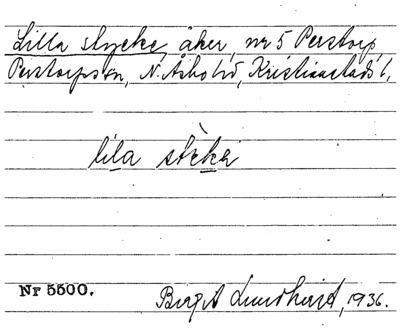 Lilla stycke, åker, nr 5 Perstorp,
Perstorps sn, N. Åsbo hd, Kristianstads l.
lila stèkə
Nr 5500.
Birgit Lundqvist, 1936.